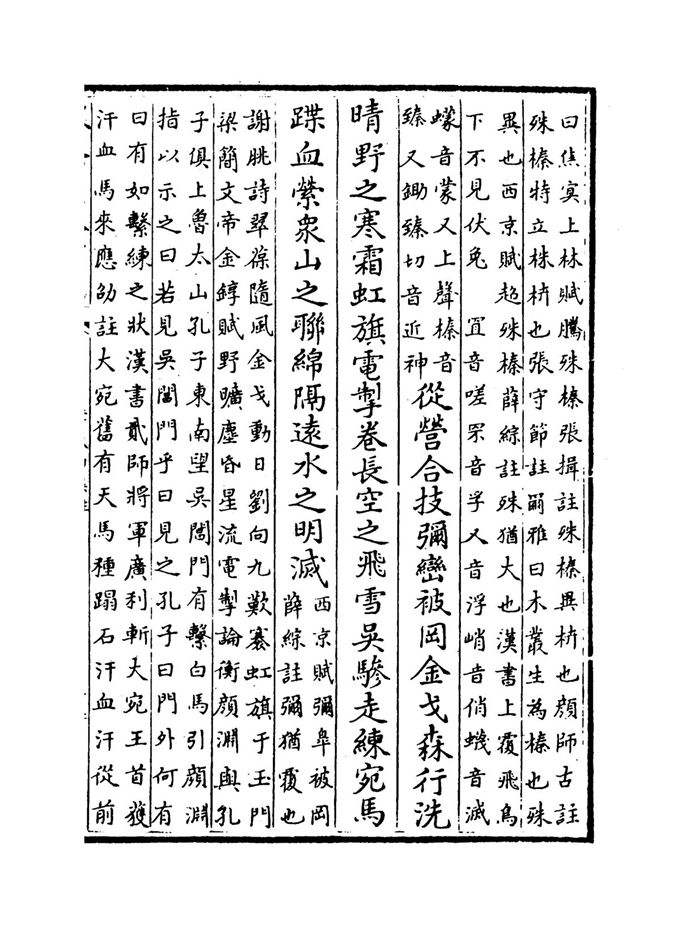 曰焦冥上林賦騰殊榛張揖註殊榛異枿也顏師古註
殊榛特立株枿也張守節註爾雅曰木叢生為榛也殊
異也西京賦超殊榛薛綜註殊猶大也漢書上覆飛鳥
下不見伏兔　罝音嗟罘音孚又音浮峭音俏蠛音滅
蠓音蒙又上聲榛音
臻又鋤臻切音近神
從營合技彌巒被岡金戈森行洗
晴野之寒霜虹旗電掣卷長空之飛雪吳驂走練宛馬
蹀血縈衆山之聯綿隔遠水之明滅
西京賦彌臯被岡
薛綜註彌猶覆也
謝朓詩翠葆隨風金戈動日劉向九歎褰虹旗于玉門
梁簡文帝金錞賦野曠塵昏星流電掣論衡顏淵與孔
子俱上魯太山孔子東南望吳閶門有繫白馬引顏淵
指以示之曰若見吳閶門乎曰見之孔子曰門外何有
曰有如繫練之狀漢書貳師將軍廣利斬大宛王首獲
汗血馬來應劭註大宛舊有天馬種蹋石汗血汗從前